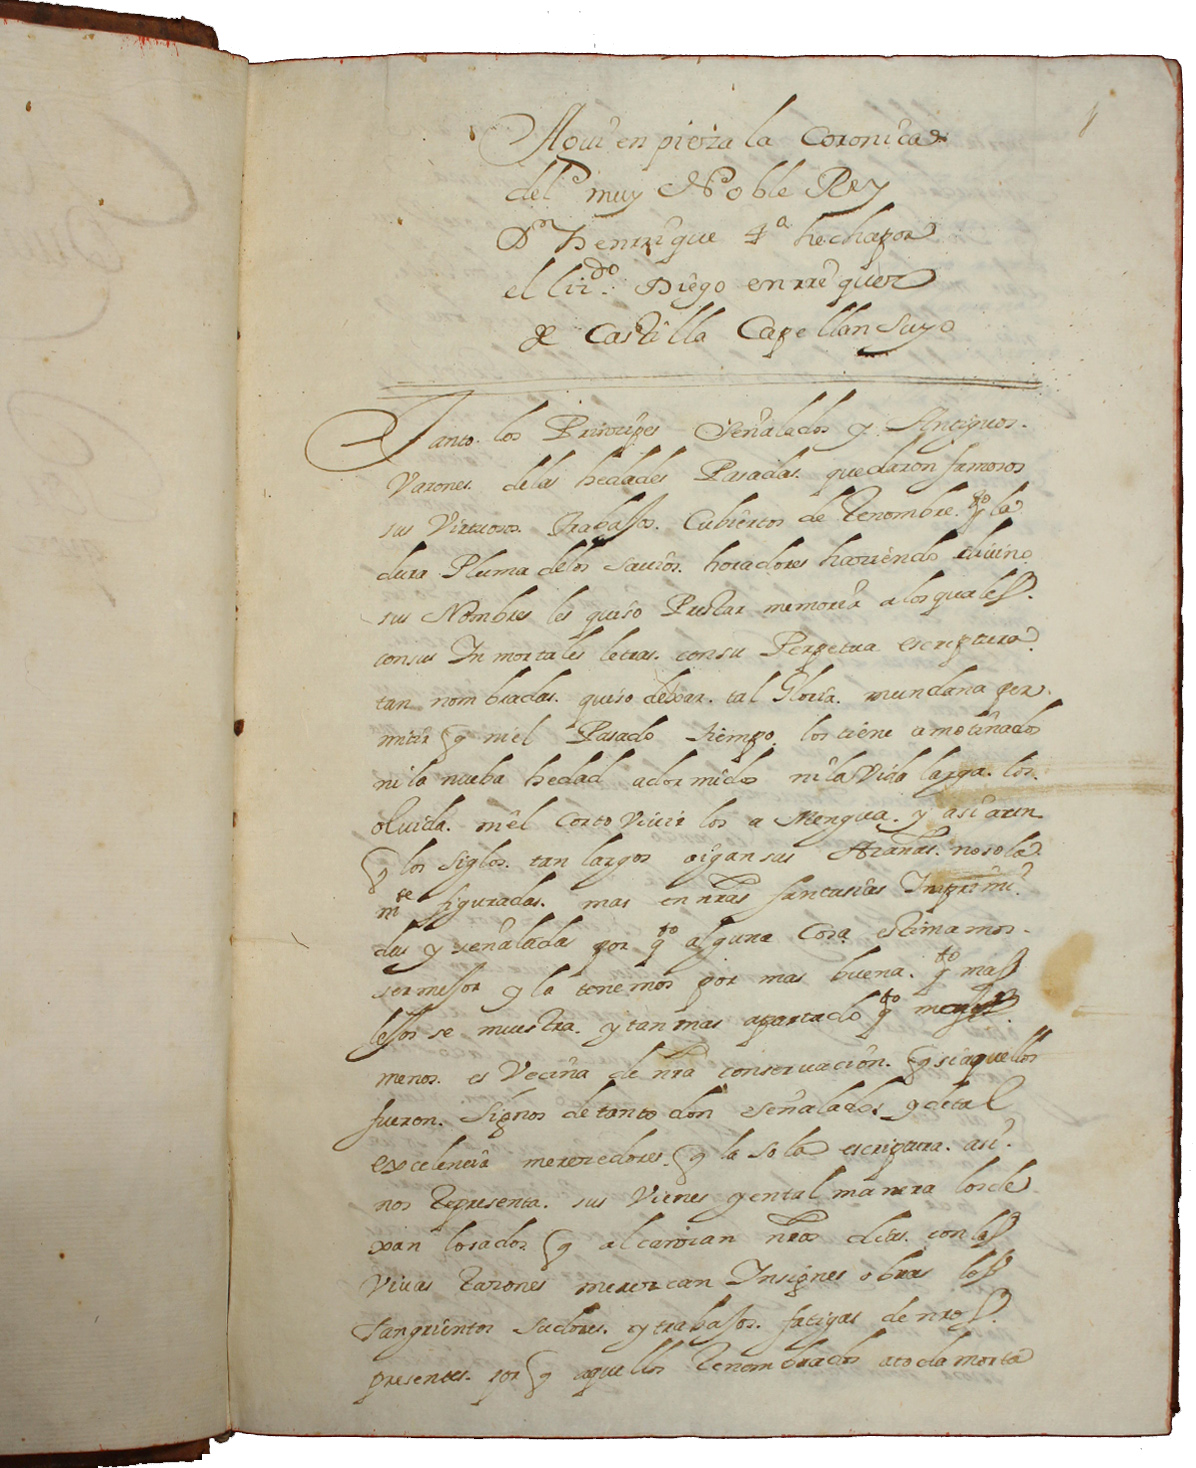 1
Aqui enpieza la Coronica de
del muy Noble Rey
Dn Henrrique 4º hecha por
el lizdo. Diego enrriquez
de Castilla Capellan Suyo
Tanto los Principes Señalados y Antiguos.
Varones. delas hedades Pasadas. quedaron famosos
sus Virtuosos. Trabajos. Cubiertos de Renombre. qto la
dura Pluma delos Savios. horadores haviendo
sus Nombres les quiso Prestar memoria alos quales.
consus Inmortales letras. consu Perpetua escreptura.
tan nombradas. quiso dexar. tal Gloria. mundana per
mitir q niel Pasado tiempo los tiene amotinados
nila nueba hedad adormidos nila Vida larga. los.
olvida. niel Corto Vivir los a Mengua. y asi aun
q los Siglos. tan largos oigan sus Azañas. no sola
mte figuradas. mas en nras fantasias Imprimi
das y señaladas por qto alguna Cosa estimamos.
ser mejor y la tenemos por mas buena. qto mas
lejos se muestra. y tan mas apartado qto
menos. es Vecina de nra conservacion. q si aquellos
fueron. Signos de tanto don señalados y de tal
excelencia merecedores. q la sola escriptura. asi.
nos Representa. sus Vienes y ental manera los de
xan loados. q alcanzan nros dias. con las
Vivas Razones merezcan Insignes obras los
Sangrientos Sudores. y trabajos. fatigas de nros.
presentes. por q aquellos Renombrados atoda morta